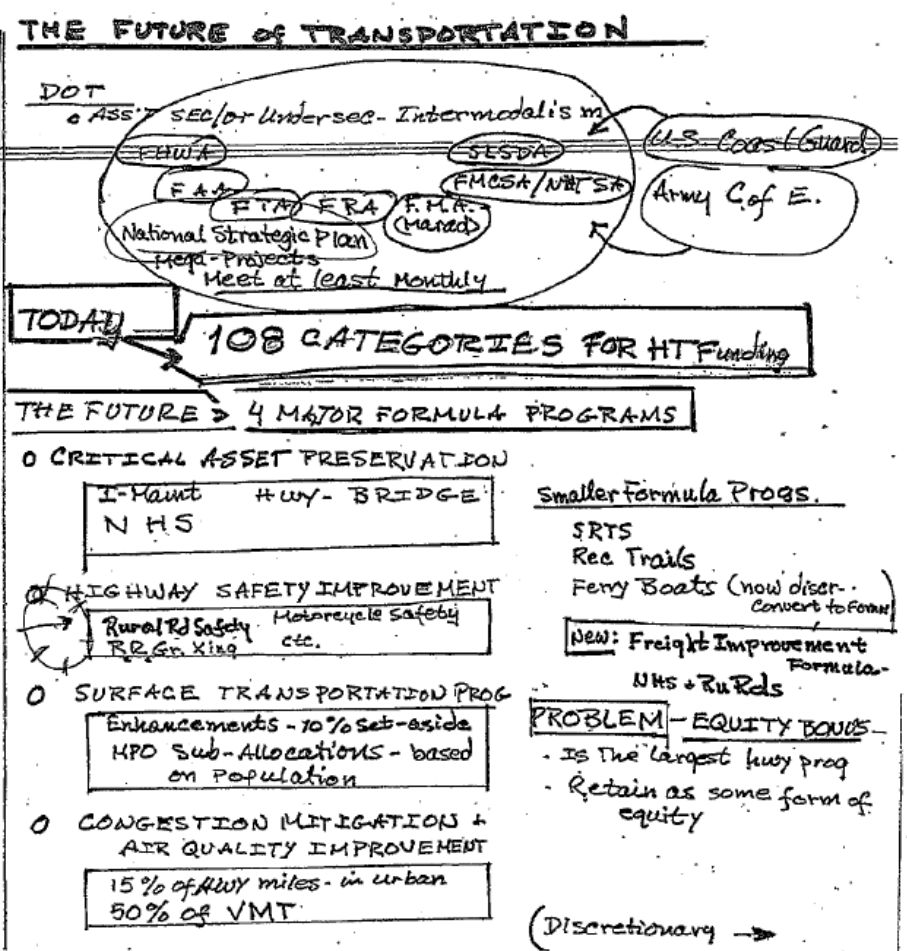 THE FUTURE of TRANSPORTATION
DOT
• ASS'T SEC/or Undersec- Intermodalism
FHWA
SLSDA
U.S. Coast Guard
FAA
FMCSA/NHTSA
FTA
FRA
F.M.A.
(Marad)
Army C of E.
National Strategic Plan
Mega-Projects
Meet at least Monthly
TODAY
108 CATEGORIES FOR HT Funding
THE FUTURE > 4 MAJOR FORMULA PROGRAMS
O CRITICAL ASSET PRESERVATION
I-Maint HWY- BRIDGE
NHS
O HIGHWAY SAFETY IMPROVEMENT
Rural Rd Safety Motorcycle Safety
RR Gr. Xing etc.
O SURFACE TRANSPORTATION PROG
Enhancements - 10% set-aside
MPO Sub-Allocations - based
on Population
O CONGESTION MITIGATION +
AIR QUALITY IMPROVEMENT
15% of HWY miles - in urban
50% of VMT
Smaller Formula Progs.
SRTS
Rec Trails
Ferry Boats (now discr..
Convert to Form)
New: Freight Improvement
Formula-
NHS + Ru Rds
PROBLEM - EQUITY BONUS -
- Is The largest hwy prog
- Retain as some form of
equity
(Discretionary →